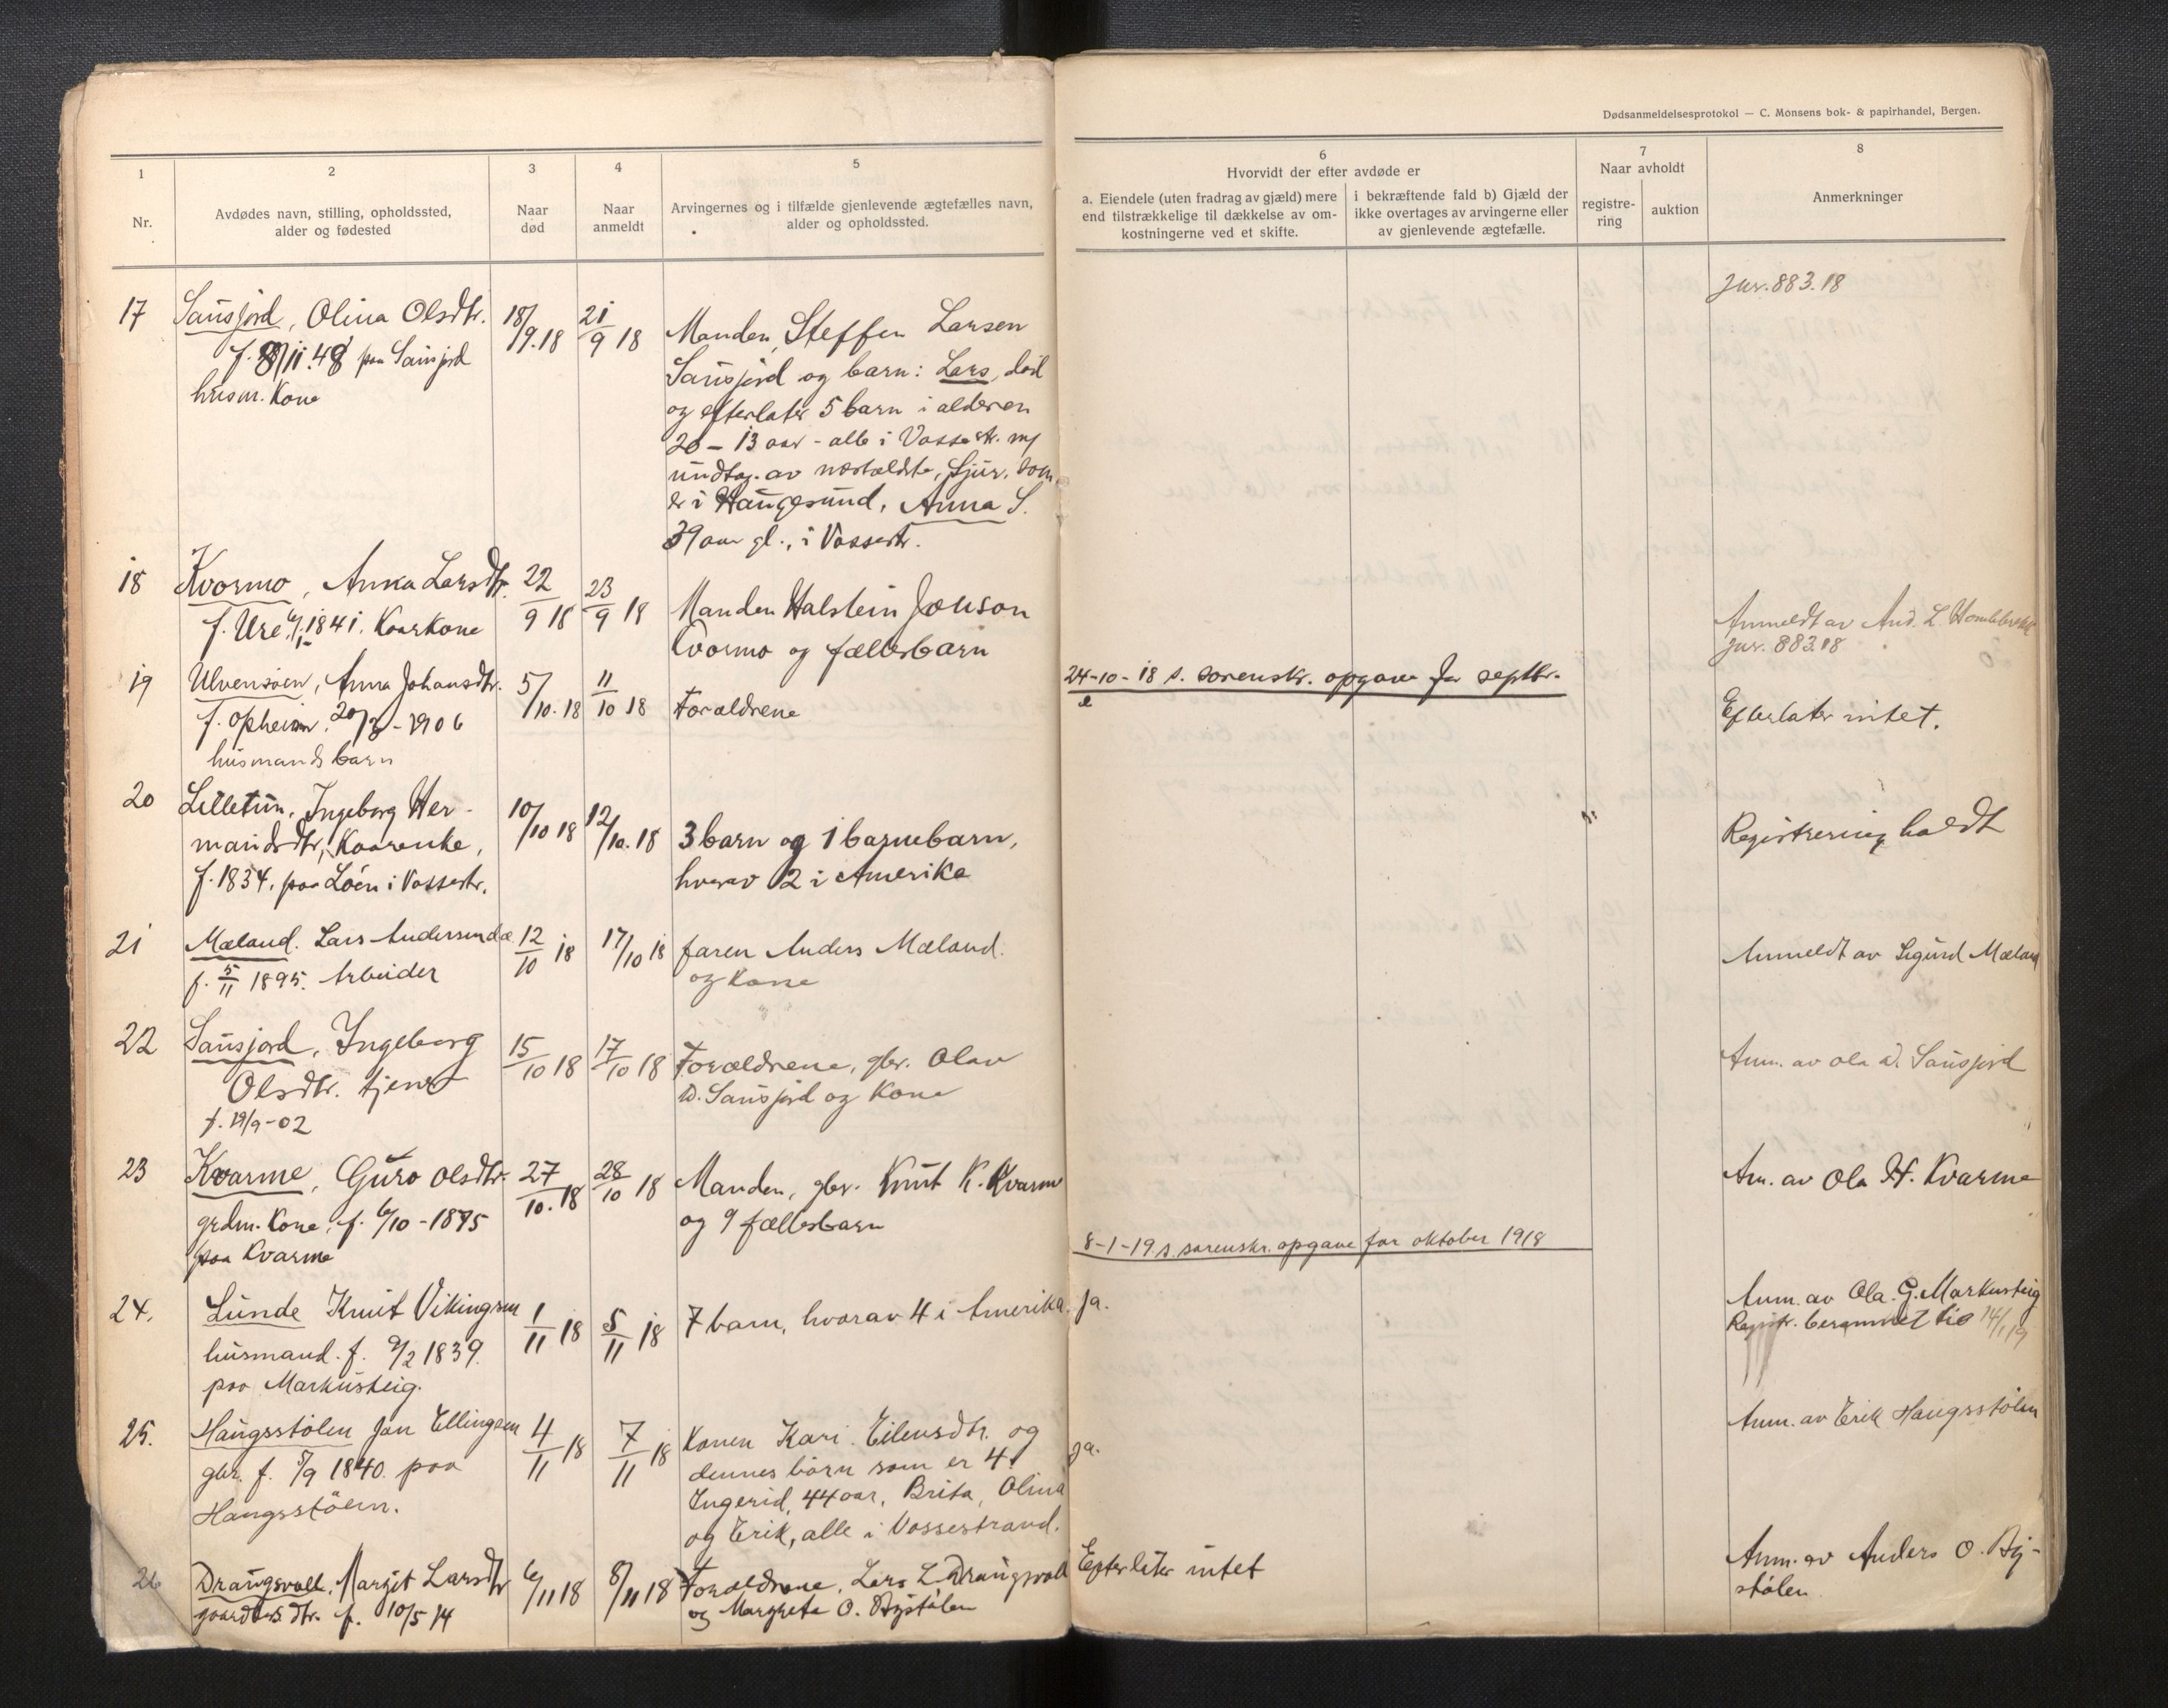 Dødsanmeldelsesprotokol — C. Monsens bok- & papirhandel, Bergen.
1
Nr.
2
Avdødes navn, stilling, opholdssted,
alder og fødested
3
Naar
død
4
Naar
anmeldt
5
Arvingernes og i tilfælde gjenlevende ægtefælles navn,
alder og opholdssted.
6
Hvorvidt der efter avdøde er
a. Eiendele (uten fradrag av gjæld) mere
end tilstrækkelige til dækkelse av om-
kostningerne ved et skifte.
i bekræftende fald b) Gjæld der
ikke overtages av arvingerne eller
av gjenlevende ægtefælle.
7
Naar avholdt
registre-
ring
auktion
8
Anmerkninger
17
Sausjord, Olina Olsdtr.
f. 11.48 paa Sausjord
husm. Kone
18/9.18
21/9 18
Manden, Steffen Larsen
Sausjord og barn: Lars, død
og efterlater 5 barn i alderen
20 – 13 aar - alle i Vossestr. m/
undtag. av næstældste, Sjur, som
er i Haugesund, Anna S.
39 aar gl., i Vossestr.
Jur. 883.18
18
Kvormo, Anna Larsdtr.
f. Ure 1841. Kaarkone
22/9 18
23/9 18
Manden Halstein Jonson
Kvormo og fællesbarn
Anmeldt av And. L.
Jur. 883.18
24-10-18 s. sorenskr. opgave for septbr.
19
Ulvensøen, Anna Johansdtr.
f. Opheim 1906
husmandsbarn
5/10.18
11/10 18
Forældrene
Efterlater intet.
20
Lilletun, Ingeborg Her-
mandsdtr, Kaarenke,
f. 1834. paa Løen i Vossestr.
10/10 18
12/10.18
3 barn og 1 barnebarn,
hvorav 2 i Amerika
Registrering holdt
21
Mæland. Lars Anderson
f. 5/11 1895. Arbeider
12/10 18
17/10 18
faren Anders Mæland.
og Kone
Anmeldt av Sigurd Mæland
22
Sausjord, Ingeborg
Olsdtr. tjener
f. 19/9-02
15/10 18
17/10 18
Forældrene, gbr. Olav
D. Sausjord og Kone
Anm. av Ola D. Sausjord
23
Kvarme, Guro Olsdtr.
grdm. Kone, f. 6/10 - 1875
paa Kvarme
27/10.18
28/10 18
Manden, gbr. Knut K. Kvarme
og 9 fællesbarn
Am. av Ola H. Kvarme
8-1-19 s. sorenskr. opgave for oktober 1918
24.
Lunde Knut Vikingson
husmand. f. 9/2 1839.
paa Markusteig.
1/11 18
5/11 18
7 barn, hvorav 4 i Amerika.
Ja.
Anm. av Ola G. Markusteig
Registr. berammet til 14/1 19
25.
Haugsstølen Jon Ellingsen
gbr. f. 5/9 1840. paa
Haugsstølen.
4/11 18
7/11 18
Konen Kari Eilensdtr. og
dennes børn som er 4.
Ingerid, 44 aar, Brita, Olina
og Erik, alle i Vossestrand.
Ja.
Anm. av Erik Haugsstølen
26
Drangsvoll, Margit Larsdtr
gaardbr. dtr. f. 10/5 14
6/11 18
8/11 18
Forældrene, Lars L. Drangsvoll
og Margreta O. Bystølen
Efterlater intet
Anm. av Anders O. By-
stølen